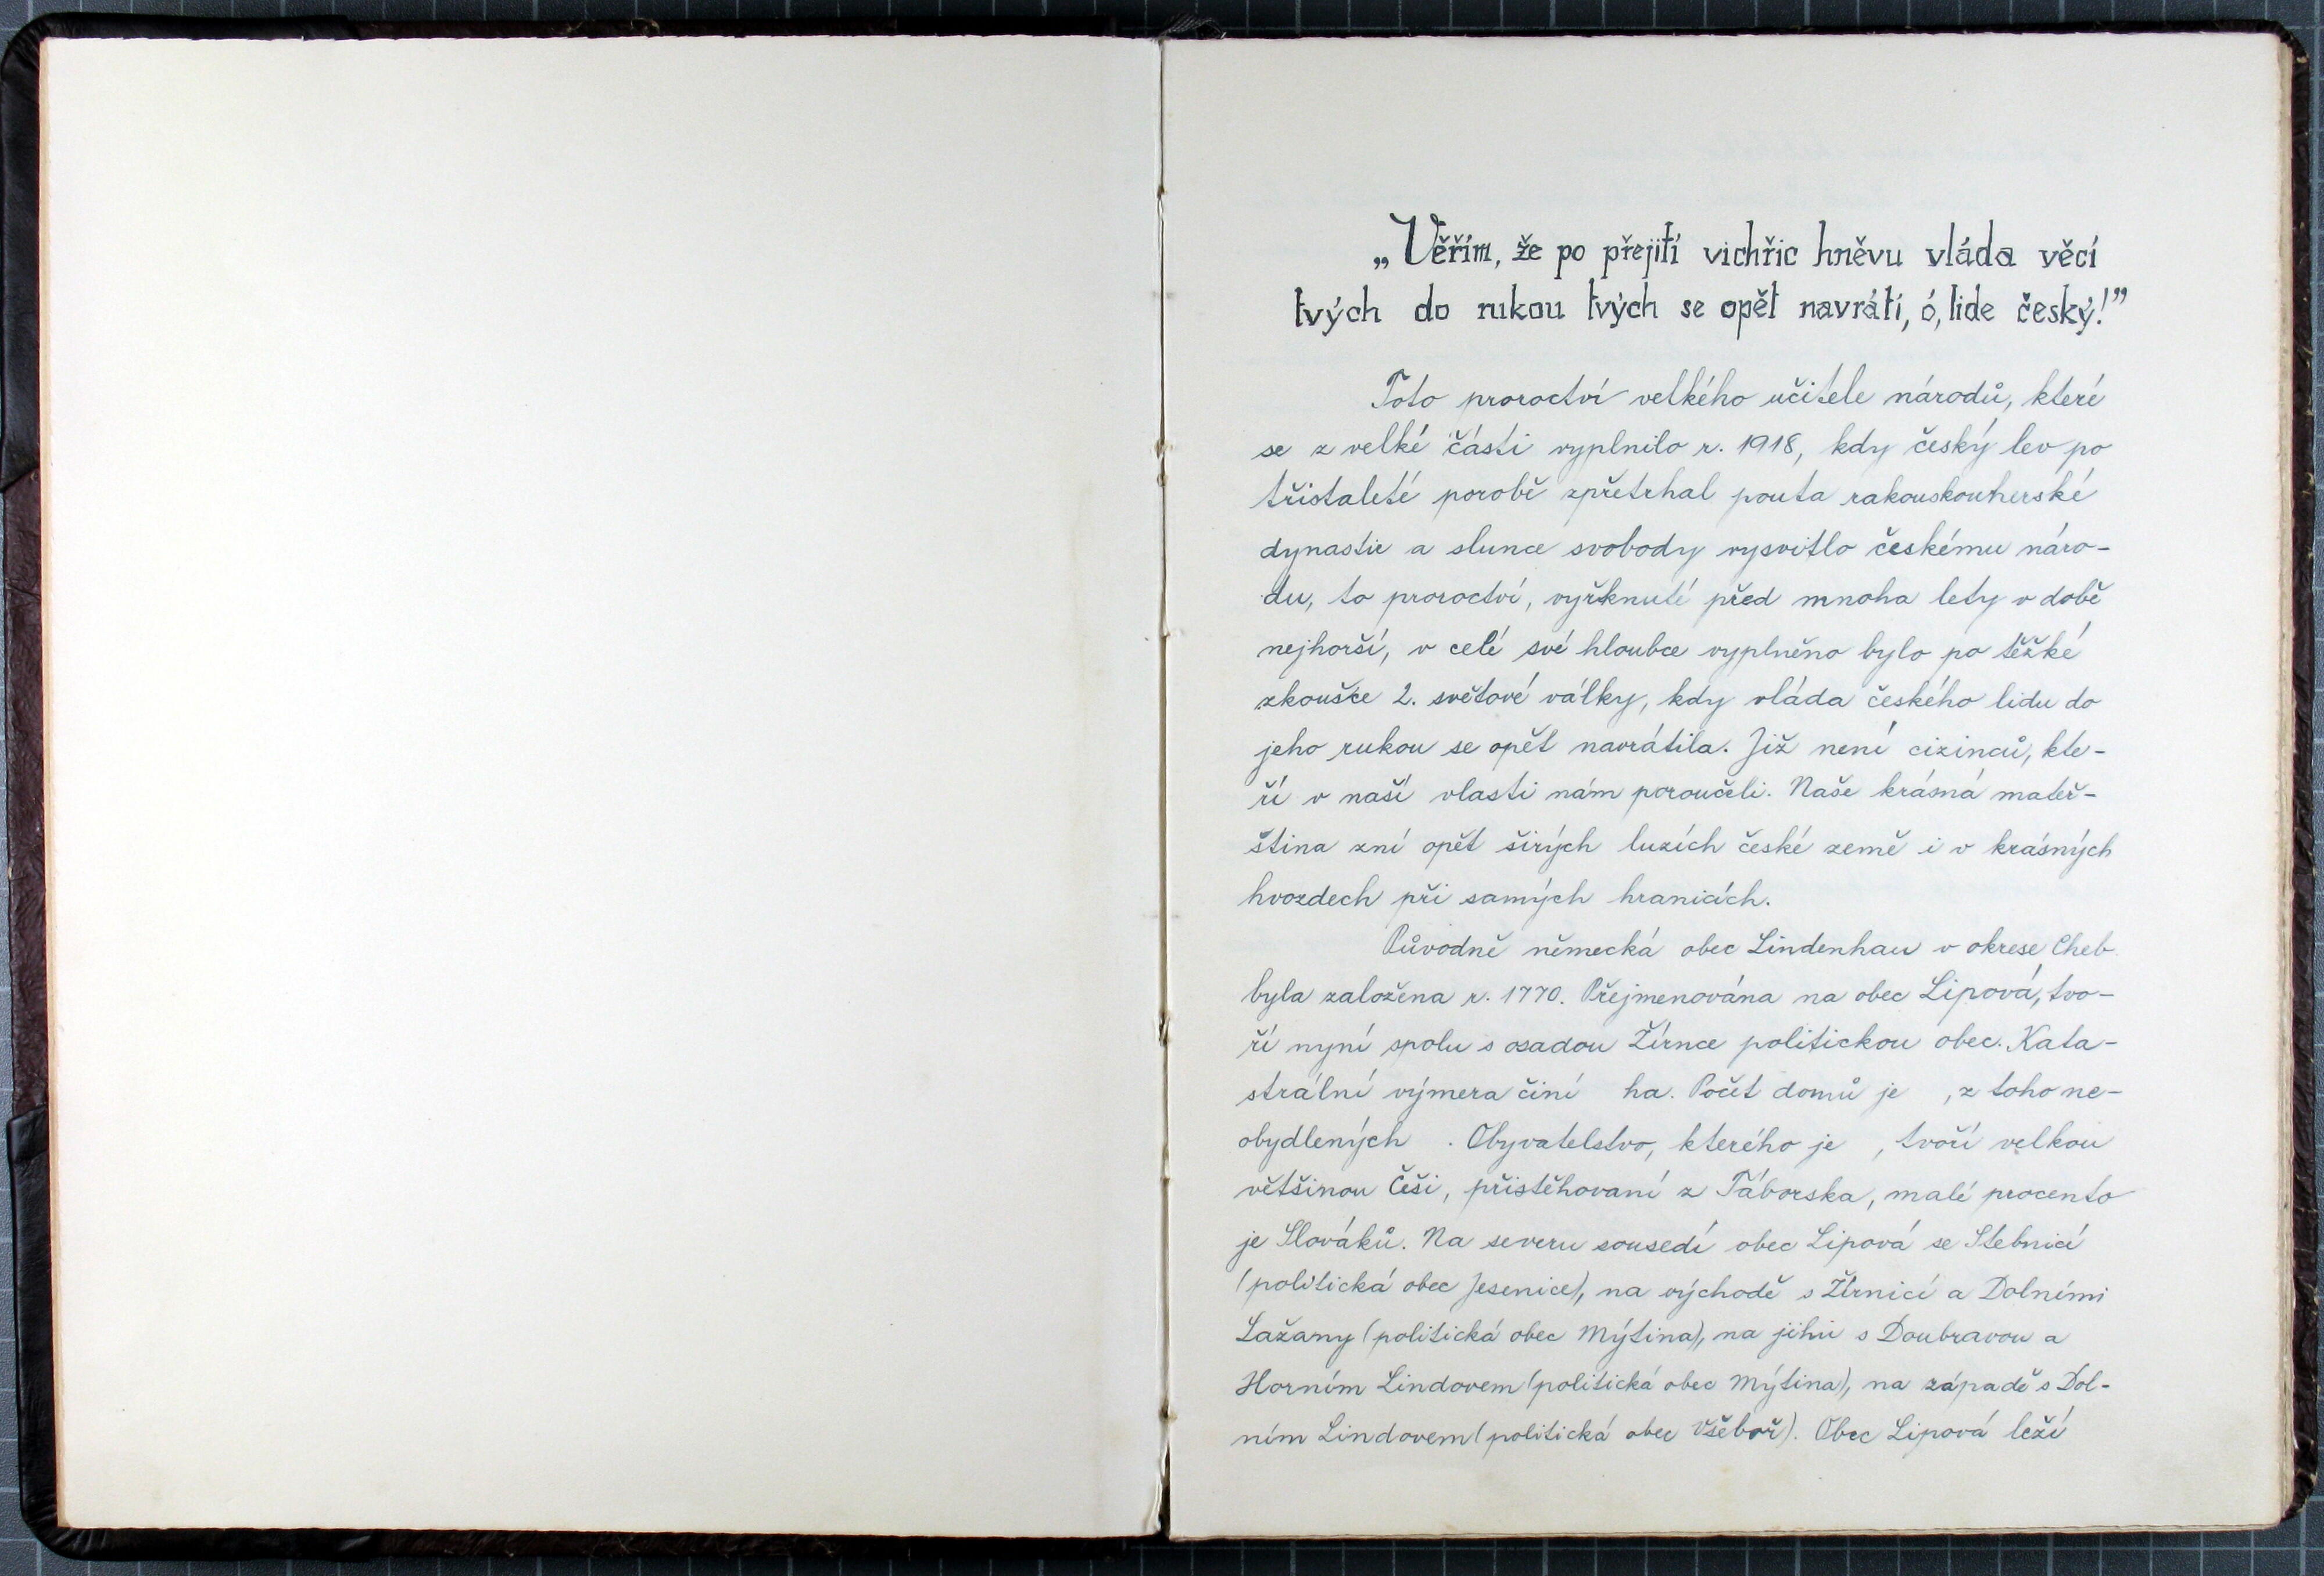 „Věřím, že po přejití vichřic hněvu vláda věcí
tvých do rukou tvých se opět navrátí, ó, lide český!”
Toto proroctví velkého učitele národů, které
se z velké části vyplnilo r. 1918, kdy český lev po
třistaleté porobě zpřetrhal pouta rakouskouherské
dynastie a slunce svobody vysvitlo českému náro-
du, to proroctví, vyřknuté před mnoha lety v době
nejhorší, v celé své hloubce vyplněno bylo po těžké
zkoušce 2. světové války, kdy vláda českého lidu do
jeho rukou se opět navrátila. Již není cizinců, kte-
ří v naší vlasti nám poroučeli. Naše krásná mateř-
ština zní opět širých luzích české země i v krásných
hvozdech při samých hranicích.
Původně německá obec Lindenhau v okrese Cheb
byla založena r. 1770. Přejmenována na obec Lipová, tvo-
ří nyní spolu s osadou Žírnce politickou obec. Kata-
strální výmera činí ha. Počet domů je , z toho ne-
obydlených . Obyvatelstvo, kterého je , tvoří velkou
většinou Češi, přistěhovaní z Táborska, malé procento
je Slováků. Na severu sousedí obec Lipová se Stebnicí
(politická obec Jesenice), na východě s Žírnicí a Dolními
Lažany (politická obec Mýtina), na jihu s Doubravou a
Horním Lindovem (politická obec Mýtina), na západě s Dol-
ním Lindovem (politická obec Všeboř). Obec Lipová leží